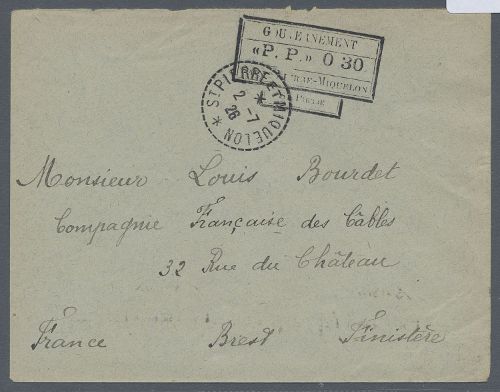 GOUVERNEMENT
« P. P. » 0 30
ST PIERRE-MIQUELON
ST PIERRE ET MIQUELON
2 -7
26
Monsieur Louis Bourdet
Compagnie Française des Câbles
32 Rue du Château
France Brest Finistère